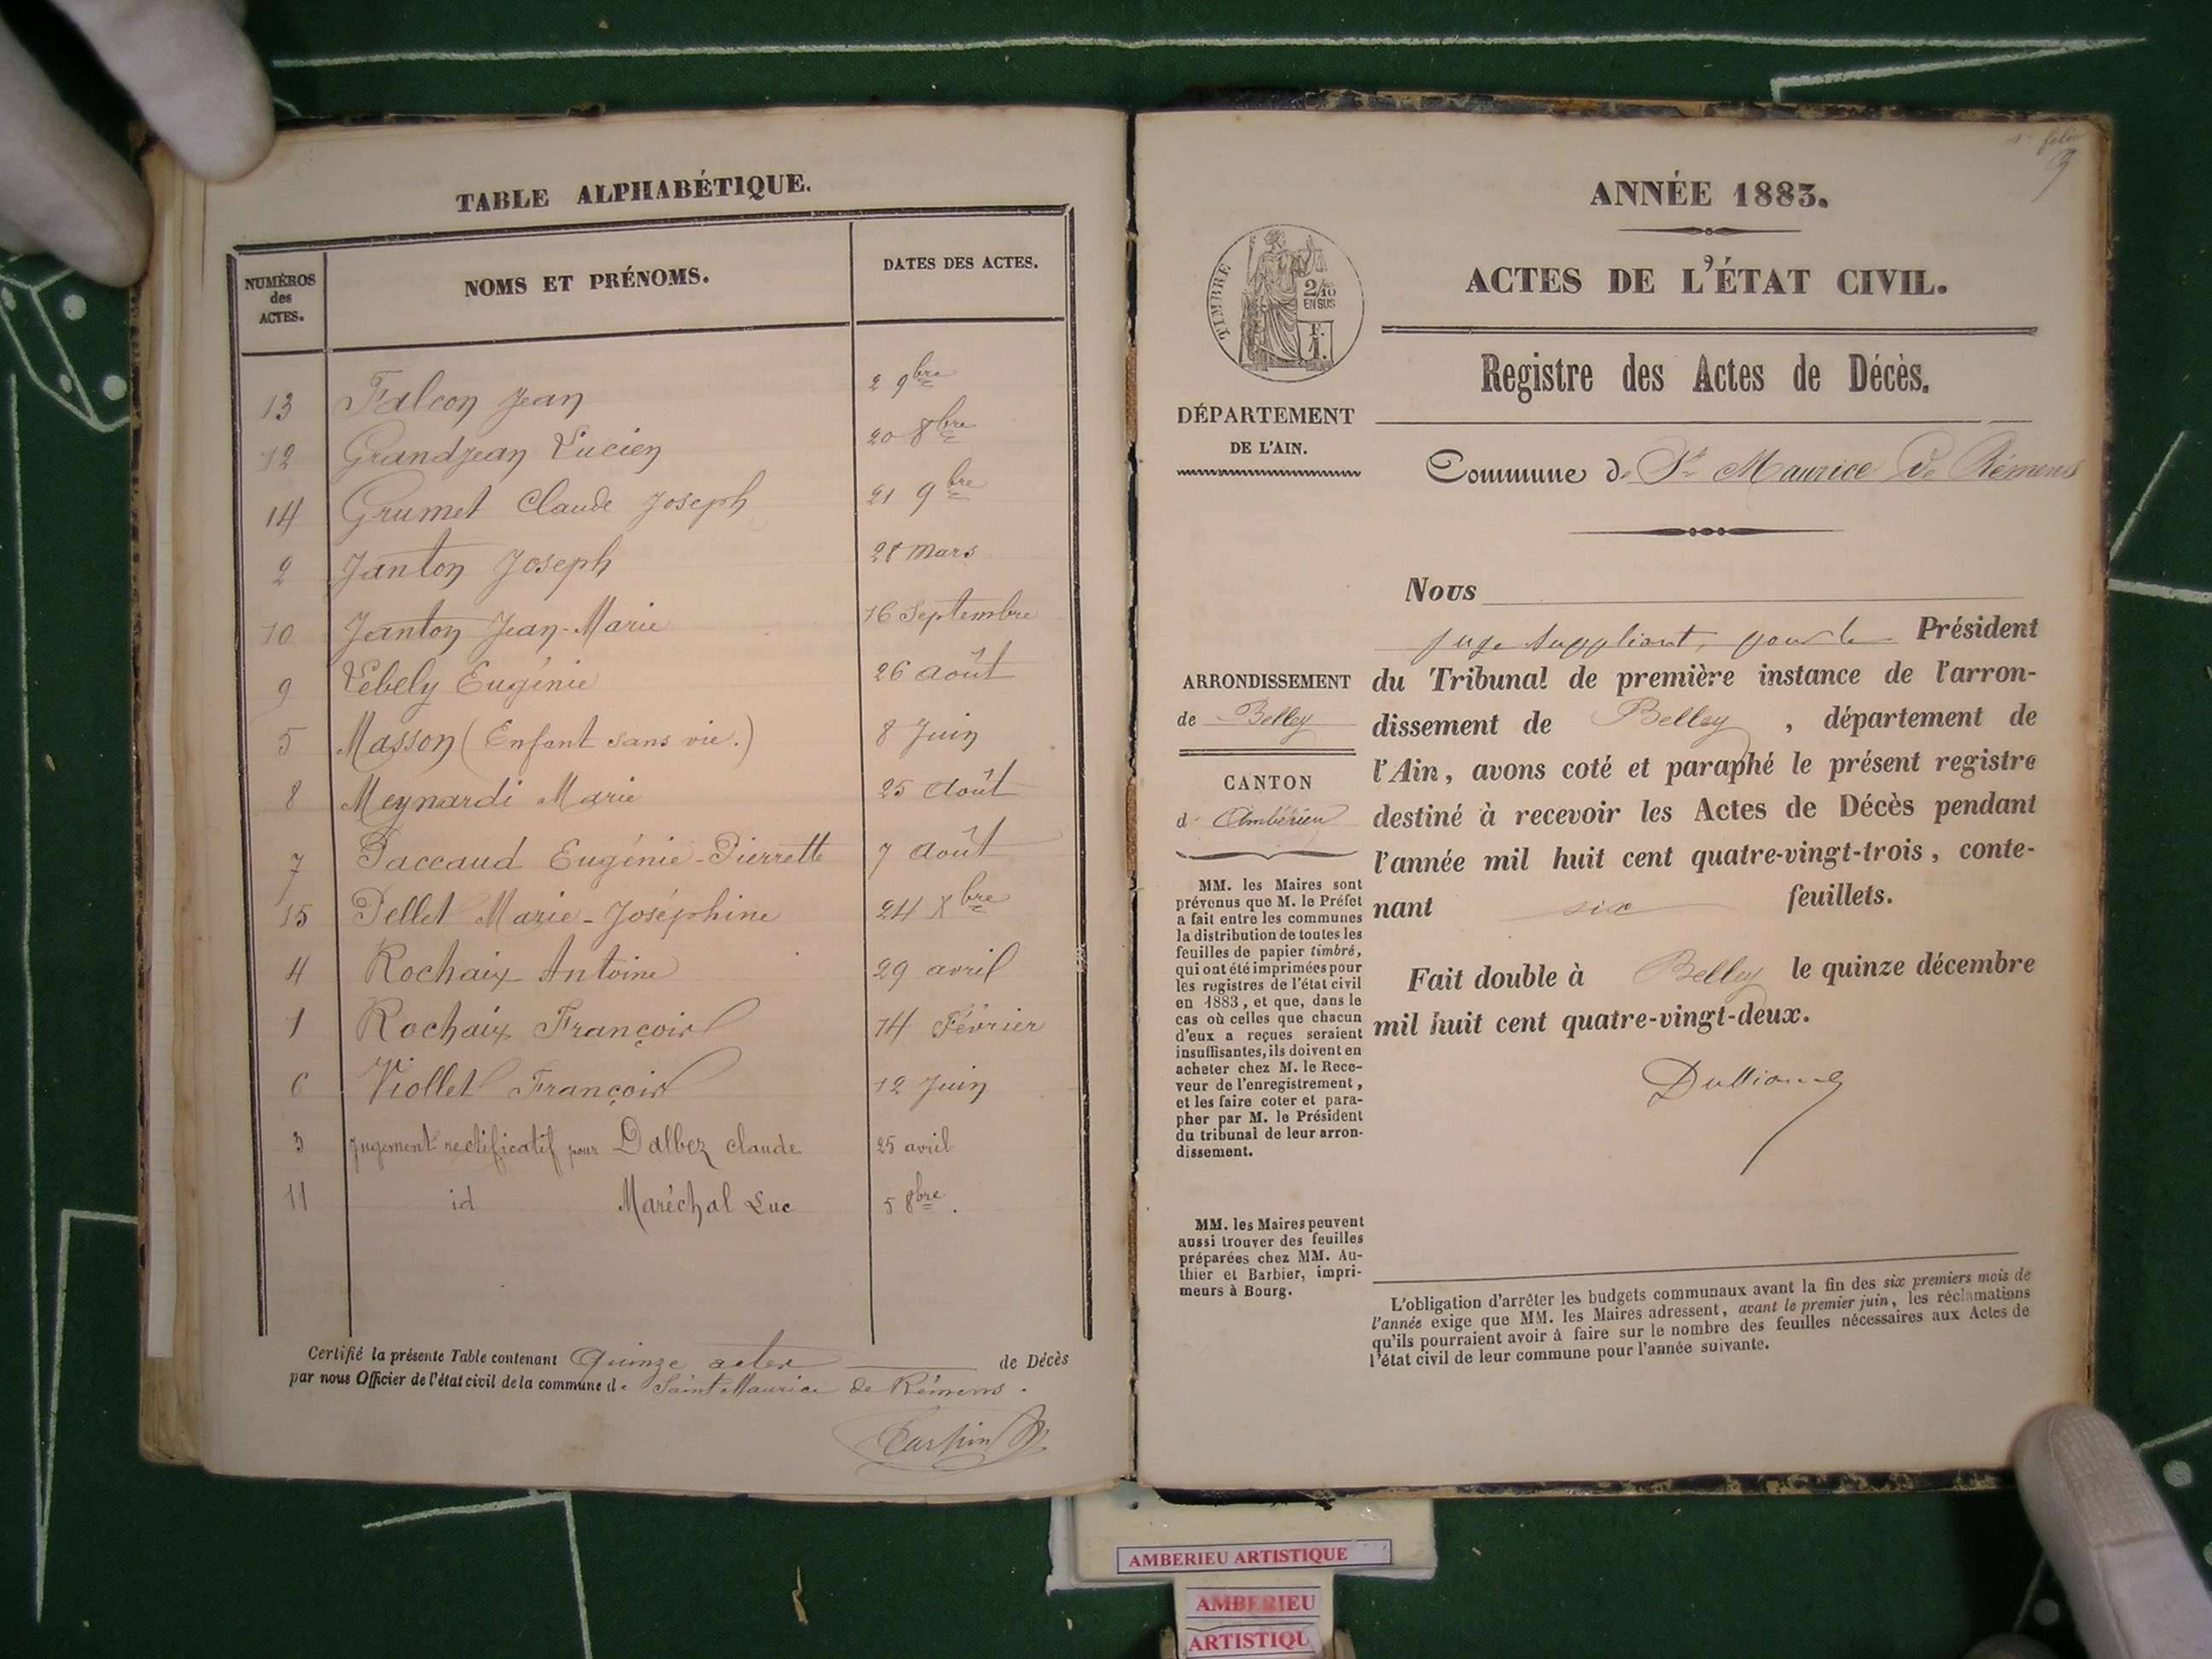 TABLE ALPHABÉTIQUE.
NUMÉROS des ACTES.
NOMS ET PRÉNOMS.
DATES DES ACTES.
13 Falcon Jean 2 9bre
12 Grandjean Lucien 20 8bre
14 Grumet Claude Joseph 21 9bre
2 Janton Joseph 28 Mars
10 Janton Jean-Marie 16 Septembre
9 Lebely Eugénie 26 Août
5 Masson (Enfant sans vie.) 8 Juin
8 Meynardi Marie 25 Août
7 Paccaud Eugénie-Pierrette 7 Août
15 Pellet Marie-Joséphine 24 Xbre
4 Rochaix Antoine 29 avril
1 Rochaix François 14 Février
6 Viollet François 12 Juin
3 Jugement rectificatif pour Dalbez Claude 25 avril
11 id Maréchal Luc 5 8bre.
Certifié la présente Table contenant Quinze actes de Décès
par nous Officier de l'état civil de la commune de Saint Maurice de Rémens.
ANNÉE 1883.
ACTES DE L'ÉTAT CIVIL.
TIMBRE
2/10
EN SUS
F.
1.
Registre des Actes de Décès.
DÉPARTEMENT
DE L'AIN.
Commune de St Maurice de Rémens
Nous
juge suppléant, pour le Président
du Tribunal de première instance de l'arron-
dissement de Belley, département de
l'Ain, avons coté et paraphé le présent registre
destiné à recevoir les Actes de Décès pendant
l'année mil huit cent quatre-vingt-trois, conte-
nant six feuillets.
Fait double à Belley le quinze décembre
mil huit cent quatre-vingt-deux.
ARRONDISSEMENT
de Belley
CANTON
d'Ambérieu
MM. les Maires sont
prévenus que M. le Préfet
a fait entre les communes
la distribution de toutes les
feuilles de papier timbré,
qui ont été imprimées pour
les registres de l'état civil
en 1883, et que, dans le
cas où celles que chacun
d'eux a reçues seraient
insuffisantes, ils doivent en
acheter chez M. le Rece-
veur de l'enregistrement,
et les faire coter et para-
pher par M. le Président
du tribunal de leur arron-
dissement.
MM. les Maires peuvent
aussi trouver des feuilles
préparées chez MM. Au-
thier et Barbier, impri-
meurs à Bourg.
L'obligation d'arrêter les budgets communaux avant la fin des six premiers mois de
l'année exige que MM. les Maires adressent, avant le premier juin, les réclamations
qu'ils pourraient avoir à faire sur le nombre des feuilles nécessaires aux Actes de
l'état civil de leur commune pour l'année suivante.
AMBERIEU ARTISTIQUE
AMBERIEU
ARTISTIQU